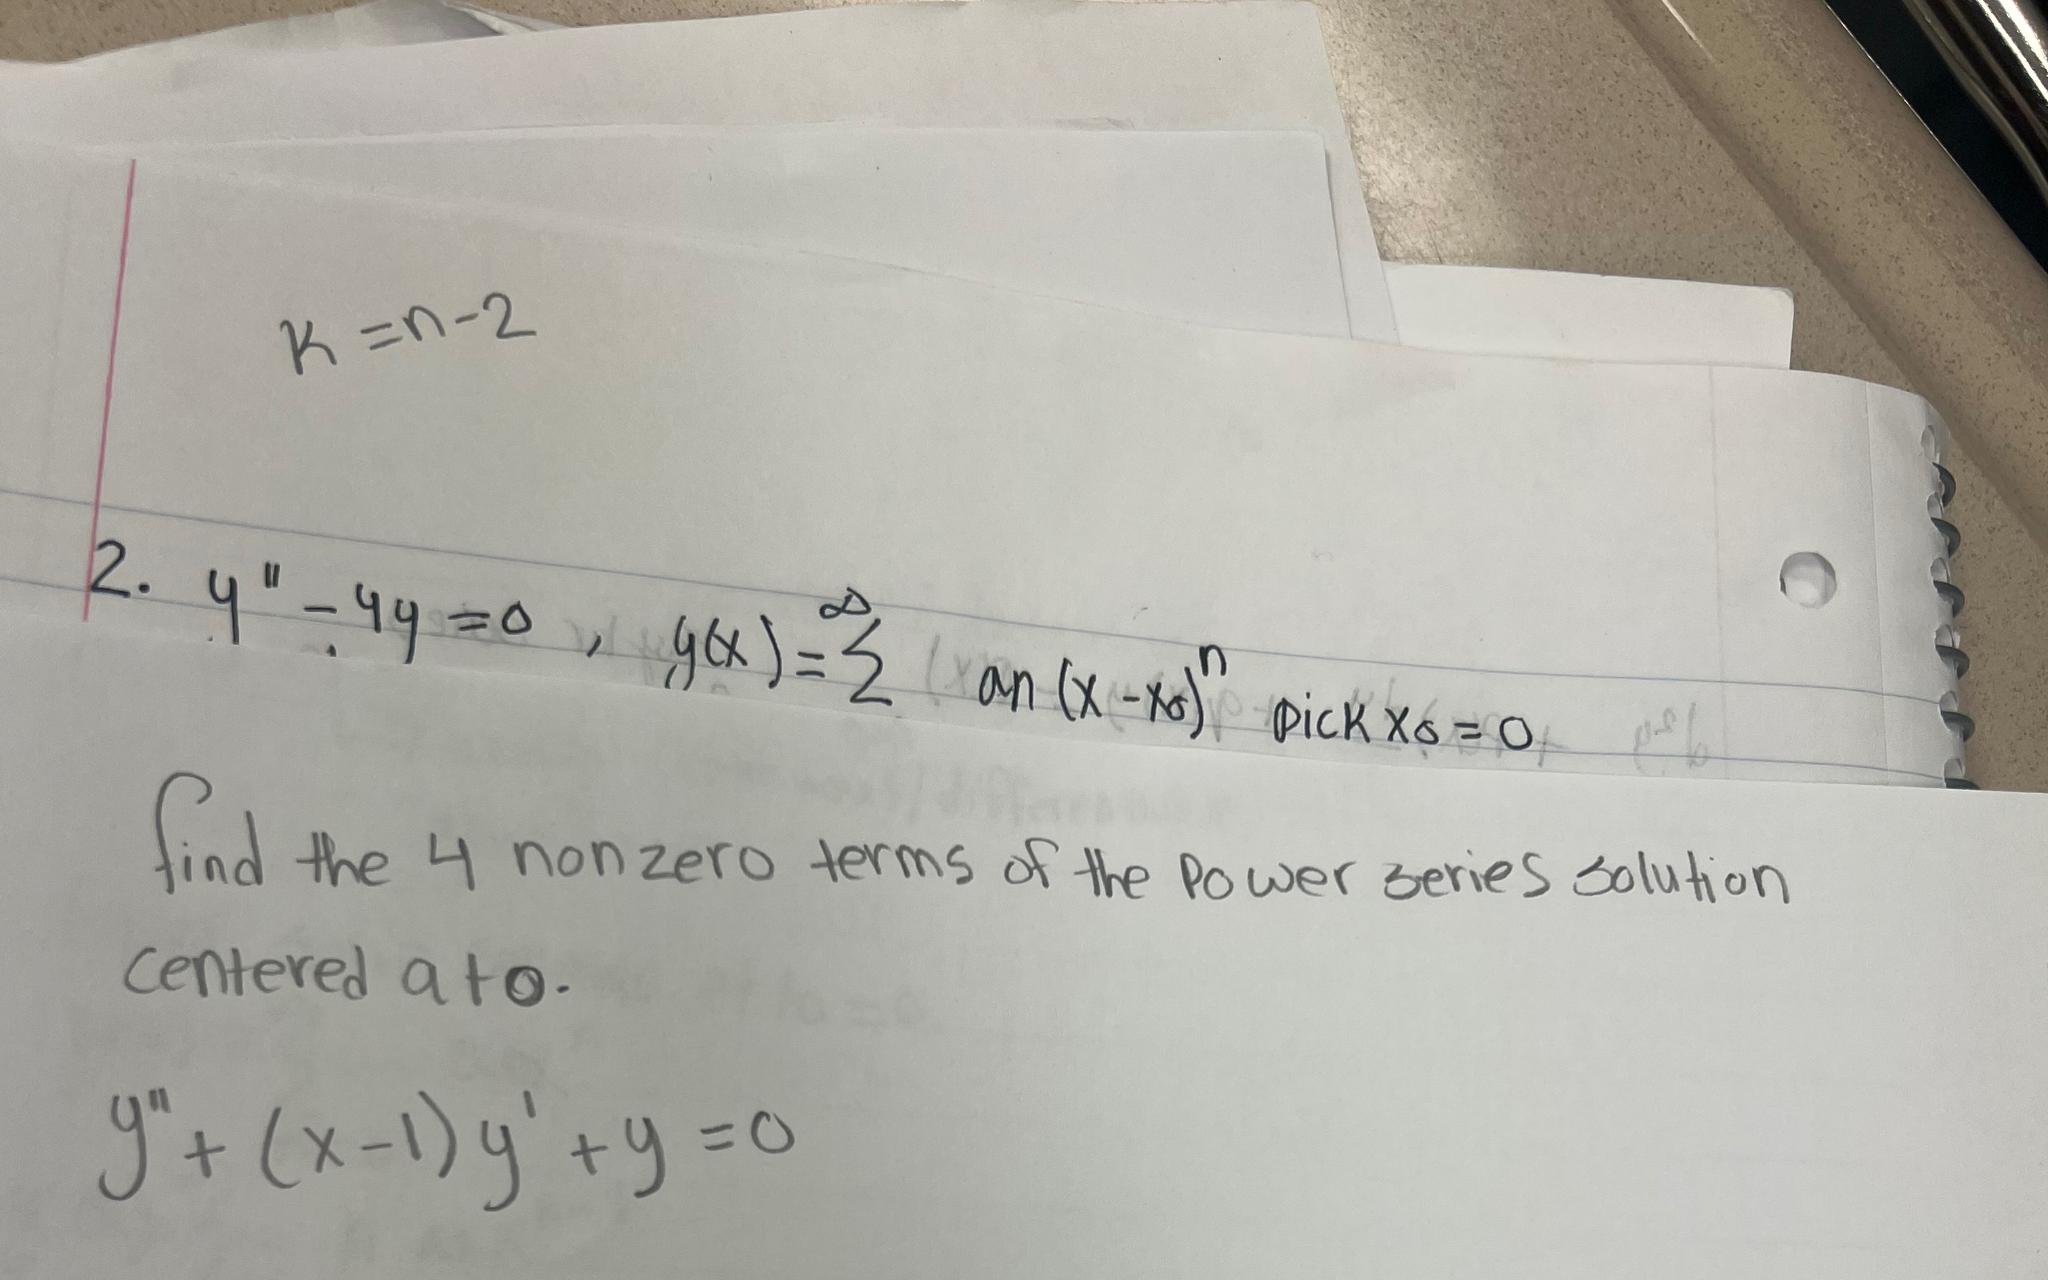 K = n-2
2. y" - 4y = 0 , y(x) = ∞ Σ an (x - x0)^n pick x0 = 0
find the 4 nonzero terms of the power series solution
centered at 0.
y" + (x-1) y' + y = 0